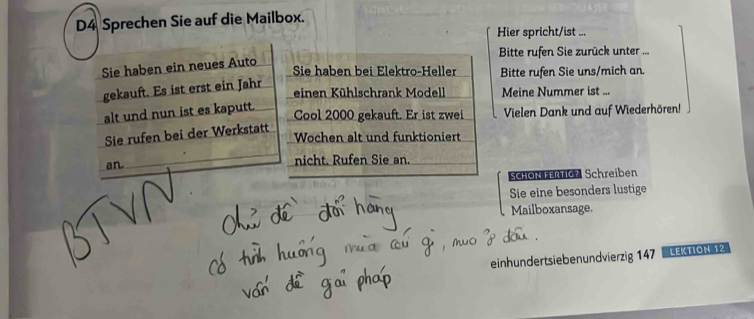 D4 Sprechen Sie auf die Mailbox.
Sie haben ein neues Auto
gekauft. Es ist erst ein Jahr
alt und nun ist es kaputt.
Sie rufen bei der Werkstatt
an.
Sie haben bei Elektro-Heller
einen Kühlschrank Modell
Cool 2000 gekauft. Er ist zwei
Wochen alt und funktioniert
nicht. Rufen Sie an.
Hier spricht/ist ...
Bitte rufen Sie zurück unter ...
Bitte rufen Sie uns/mich an.
Meine Nummer ist ...
Vielen Dank und auf Wiederhören!
SCHON FERTIG? Schreiben
Sie eine besonders lustige
Mailboxansage.
BTVN
chủ đề đổi hàng
có tình huống mua cái gì, mua ở đâu.
vấn đề giải pháp
einhundertsiebenundvierzig 147 LEKTION 12